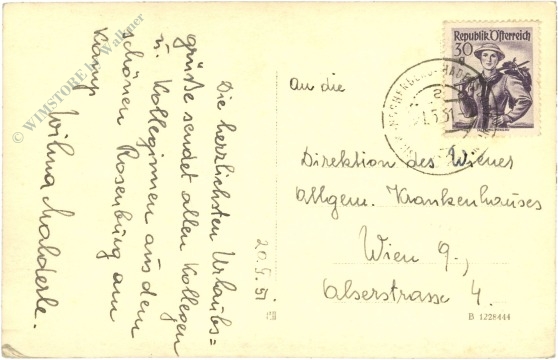 Die herzlichsten Urlaubs=
grüße sendet allen Kollegen
u. Kolleginnen aus dem
schönen Rosenburg am
Kamp
20.9.51
© WIMSTORE I. Wallner
Republik Österreich
30
g
An die
Direktion des Wiener
Allgem. Krankenhauses
Wien 9.,
Alserstrasse 4.
B 1228444